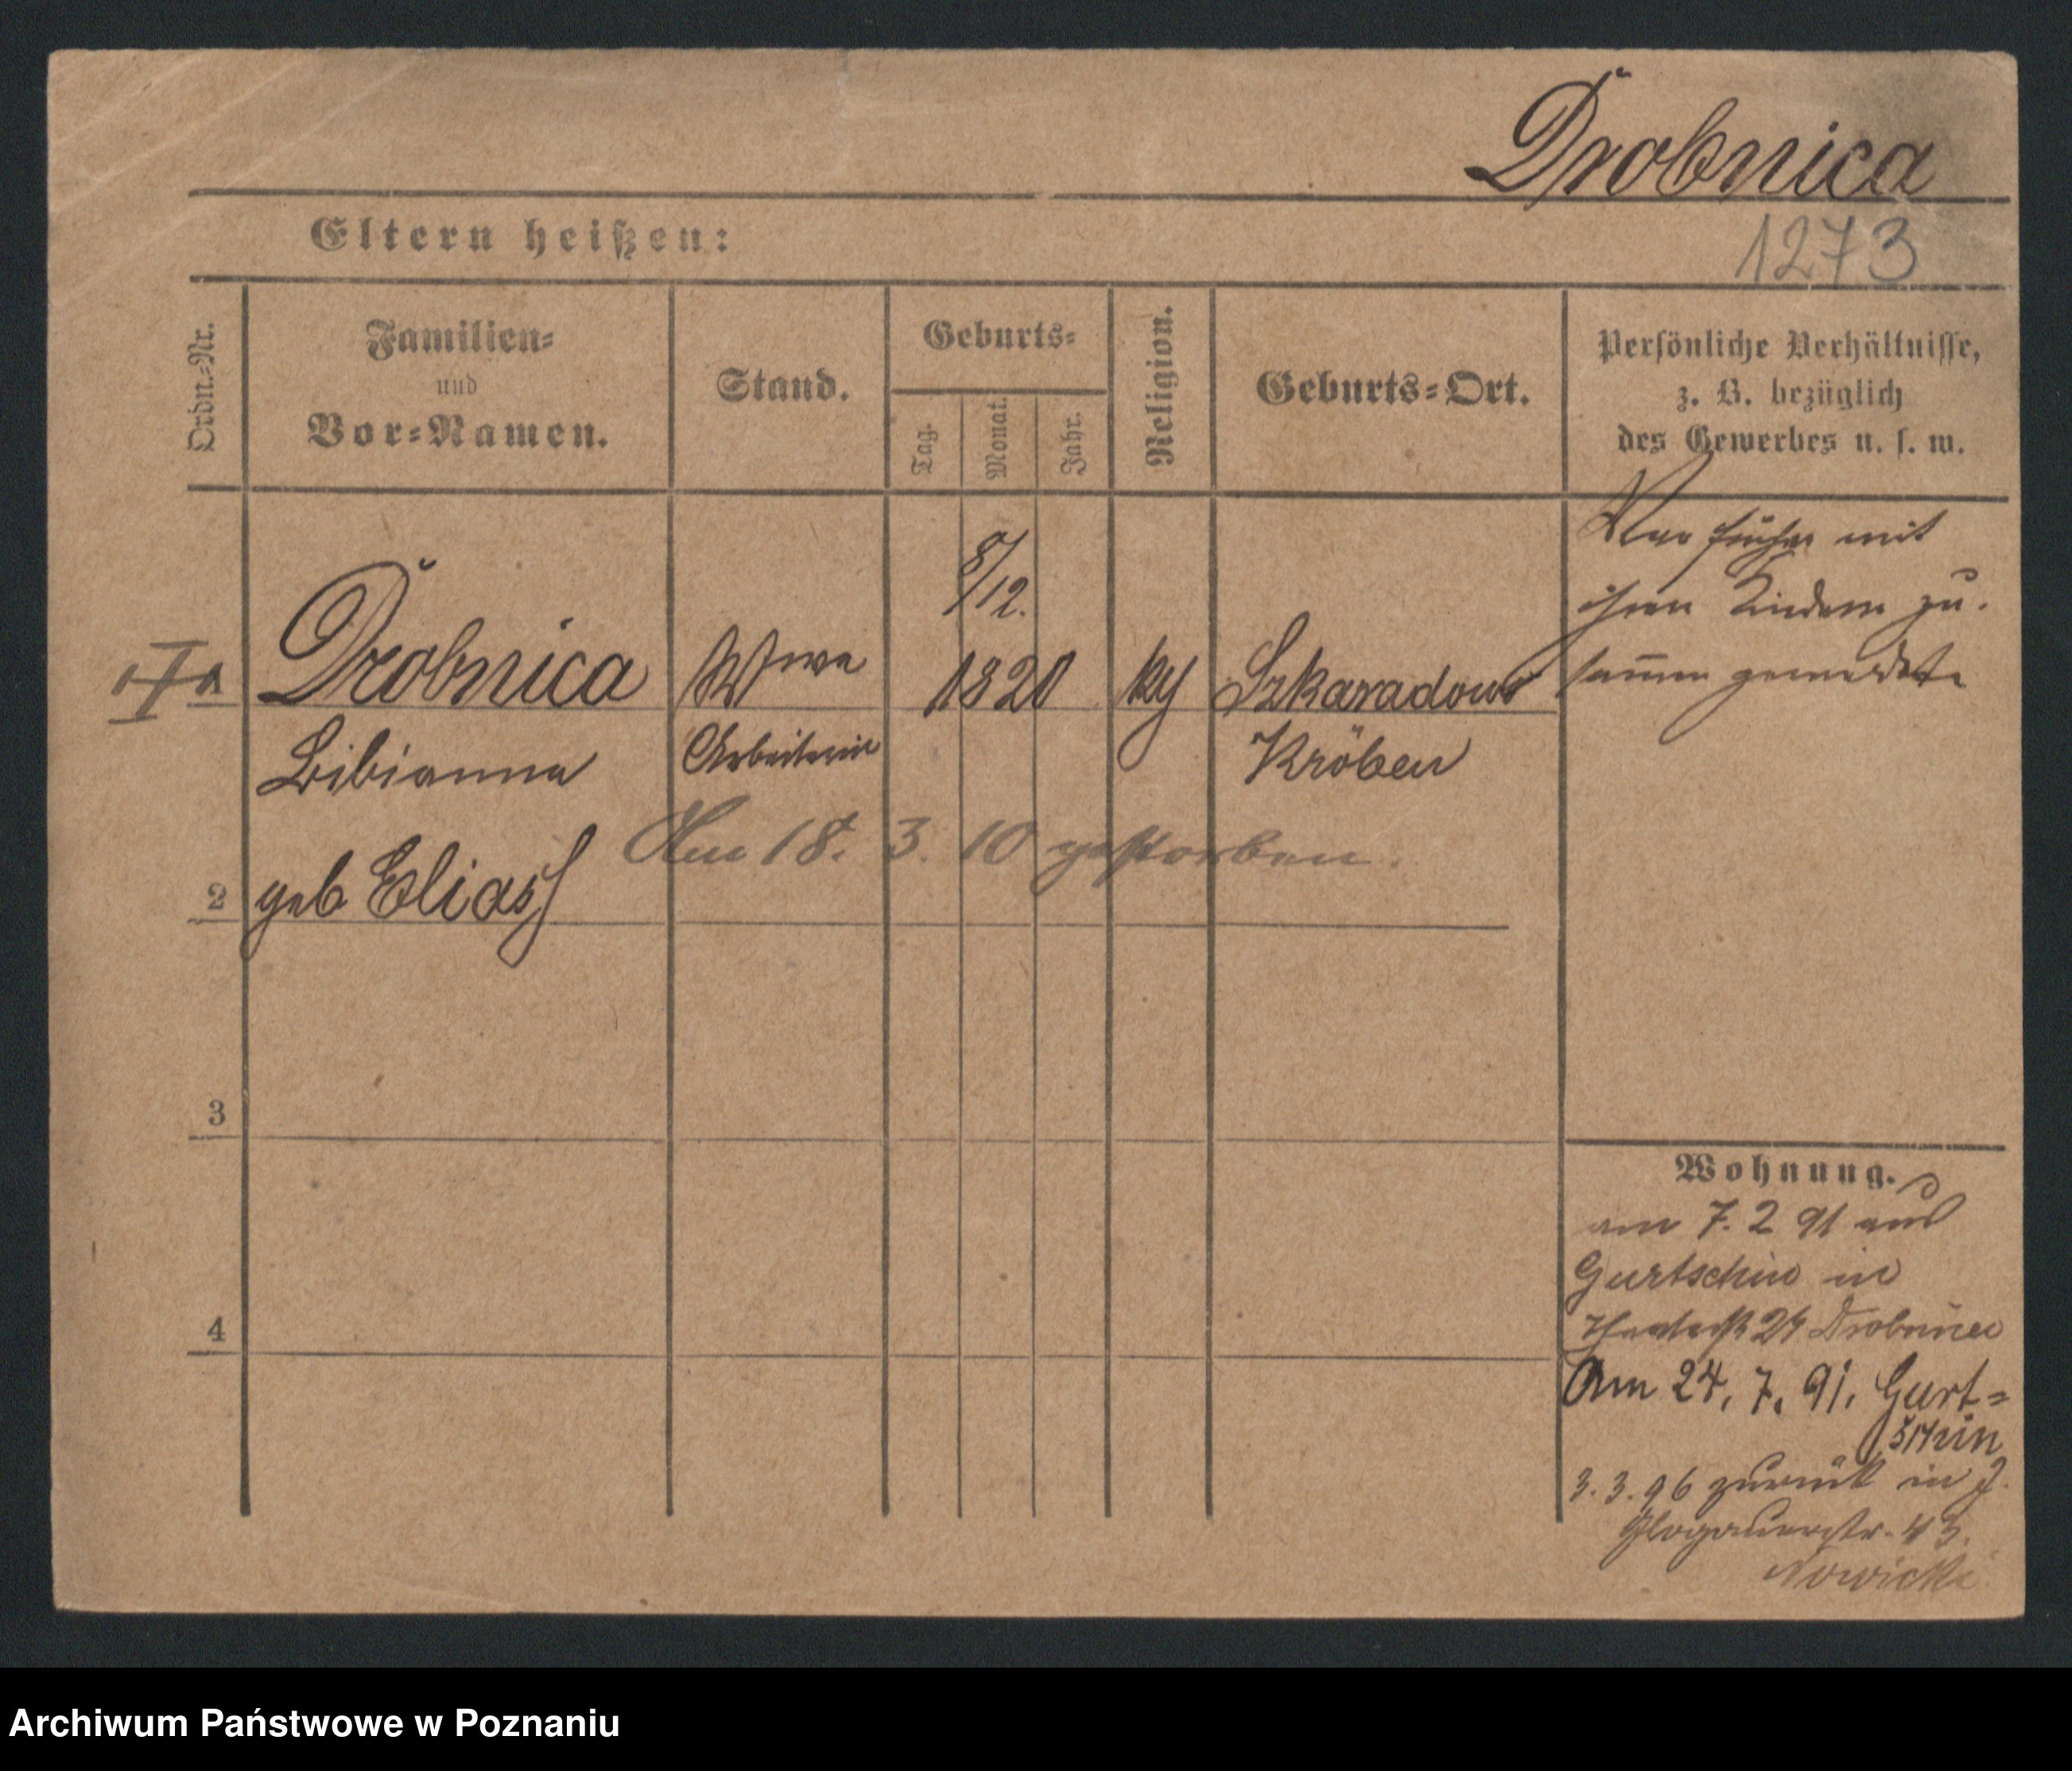 Drobnica
1273
Eltern heißen:
Ordn.-Nr.
Familien-
und
Vor-Namen.
Stand.
Geburts-
Tag.
Monat.
Jahr.
Religion.
Geburts-Ort.
Persönliche Verhältnisse,
z. B. bezüglich
des Gewerbes u. s. w.
Drobnica
Bibianna
geb Eliass
Wwe
Arbeiterin
8/12.
1820
Szkaradowo
Kröben
War früher mit
ihren Kindern zu-
sammen gemeldet
Am 18. 3. 10 gestorben.
2
3
4
Wohnung.
am 7. 2 91 aus
Gurtschin in
24 Drobnica
Am 24. 7. 91. Gurt=
schin
3. 3. 96 zurück in J.
Glogauerstr. 43.
Nowicki
Archiwum Państwowe w Poznaniu